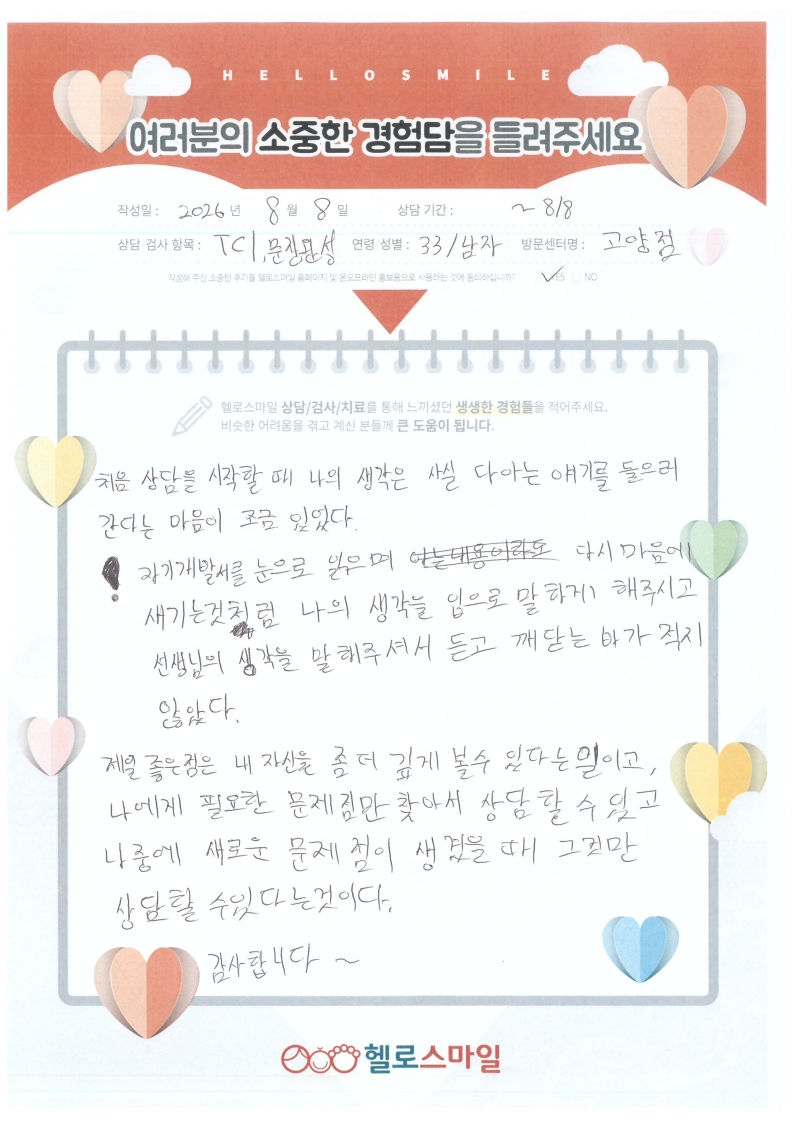 HELLOSMILE
여러분의 소중한 경험담을 들려주세요
작성일 : 2026년 8월 8일 상담 기간 : ~ 8/8
상담 검사 항목 : TCI, 문장완성 연령 성별 : 33/남자 방문센터명 : 고양점
작성해 주신 소중한 후기를 헬로스마일 홈페이지 및 온오프라인 홍보용으로 사용하는 것에 동의하십니까? YES NO
헬로스마일 상담/검사/치료를 통해 느끼셨던 생생한 경험들을 적어주세요.
비슷한 어려움을 겪고 계신 분들께 큰 도움이 됩니다.
처음 상담을 시작할 때 나의 생각은 사실 다아는 얘기를 들으러
간다는 마음이 조금 있었다.
! 자기개발서를 눈으로 읽으며 아는내용이라도 다시 마음에
새기는것처럼 나의 생각을 입으로 말하게 해주시고
선생님의 생각을 말해주셔서 듣고 깨닫는 바가 적지
않았다.
제일 좋은점은 내 자신을 좀 더 깊게 볼수 있다는 이고,
나에게 필요한 문제점만 찾아서 상담할 수 있고
나중에 새로운 문제점이 생겼을 때 그것만
상담할 수있다는것이다.
감사합니다 ~
헬로스마일